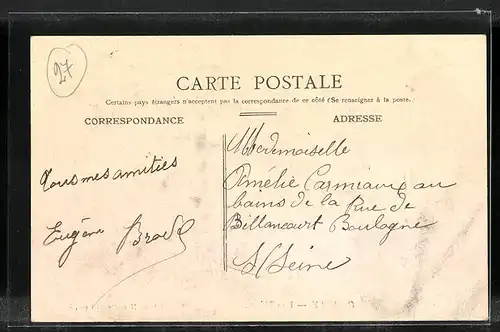 27
CARTE POSTALE
Certains pays étrangers n'acceptent pas la correspondance de ce côté (Se renseigner à la poste.
CORRESPONDANCE
ADRESSE
Tous mes amitiés
Eugène
Mademoiselle
Amélie Carmiaux au
bains de la Rue de
Billancourt Boulogne
S/Seine